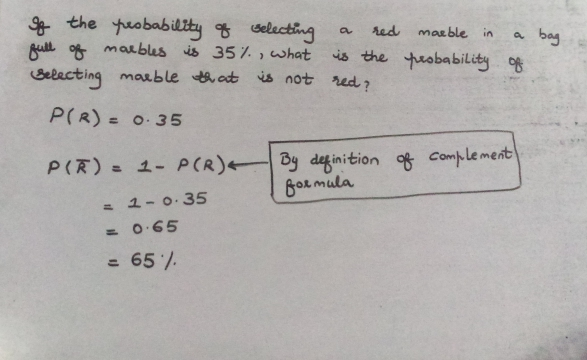 If the probability of selecting a red marble in a bag
full of marbles is 35%, what is the probability of
selecting marble that is not red?
P(R) = 0.35
P(R̅) = 1 - P(R) ← By definition of complement
formula
= 1 - 0.35
= 0.65
= 65%